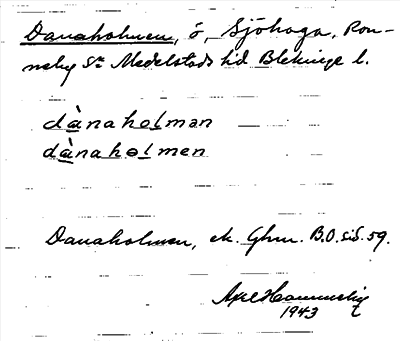 Danaholmen, ö, Sjöhaga, Ron-
neby Sn Medelstads hd Blekinge l.
dànahoḷman
dànahəḷmen
Danaholmen, ek. Ghm. B.O.S.i.S. 59.
Axel
1943